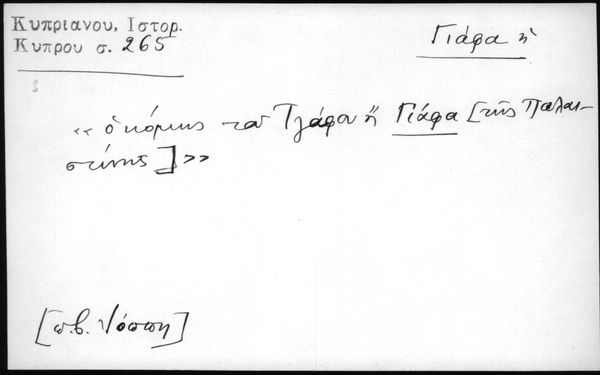 Κυπριανου, Ιστορ.
Κυπρου σ. 265
Γιάφα ἡ
«ὁ κόμης τοῦ Τζάφου ἢ Γιάφα [τῆς Παλαι-
στίνης]»
[π.β. Ἰόππη]